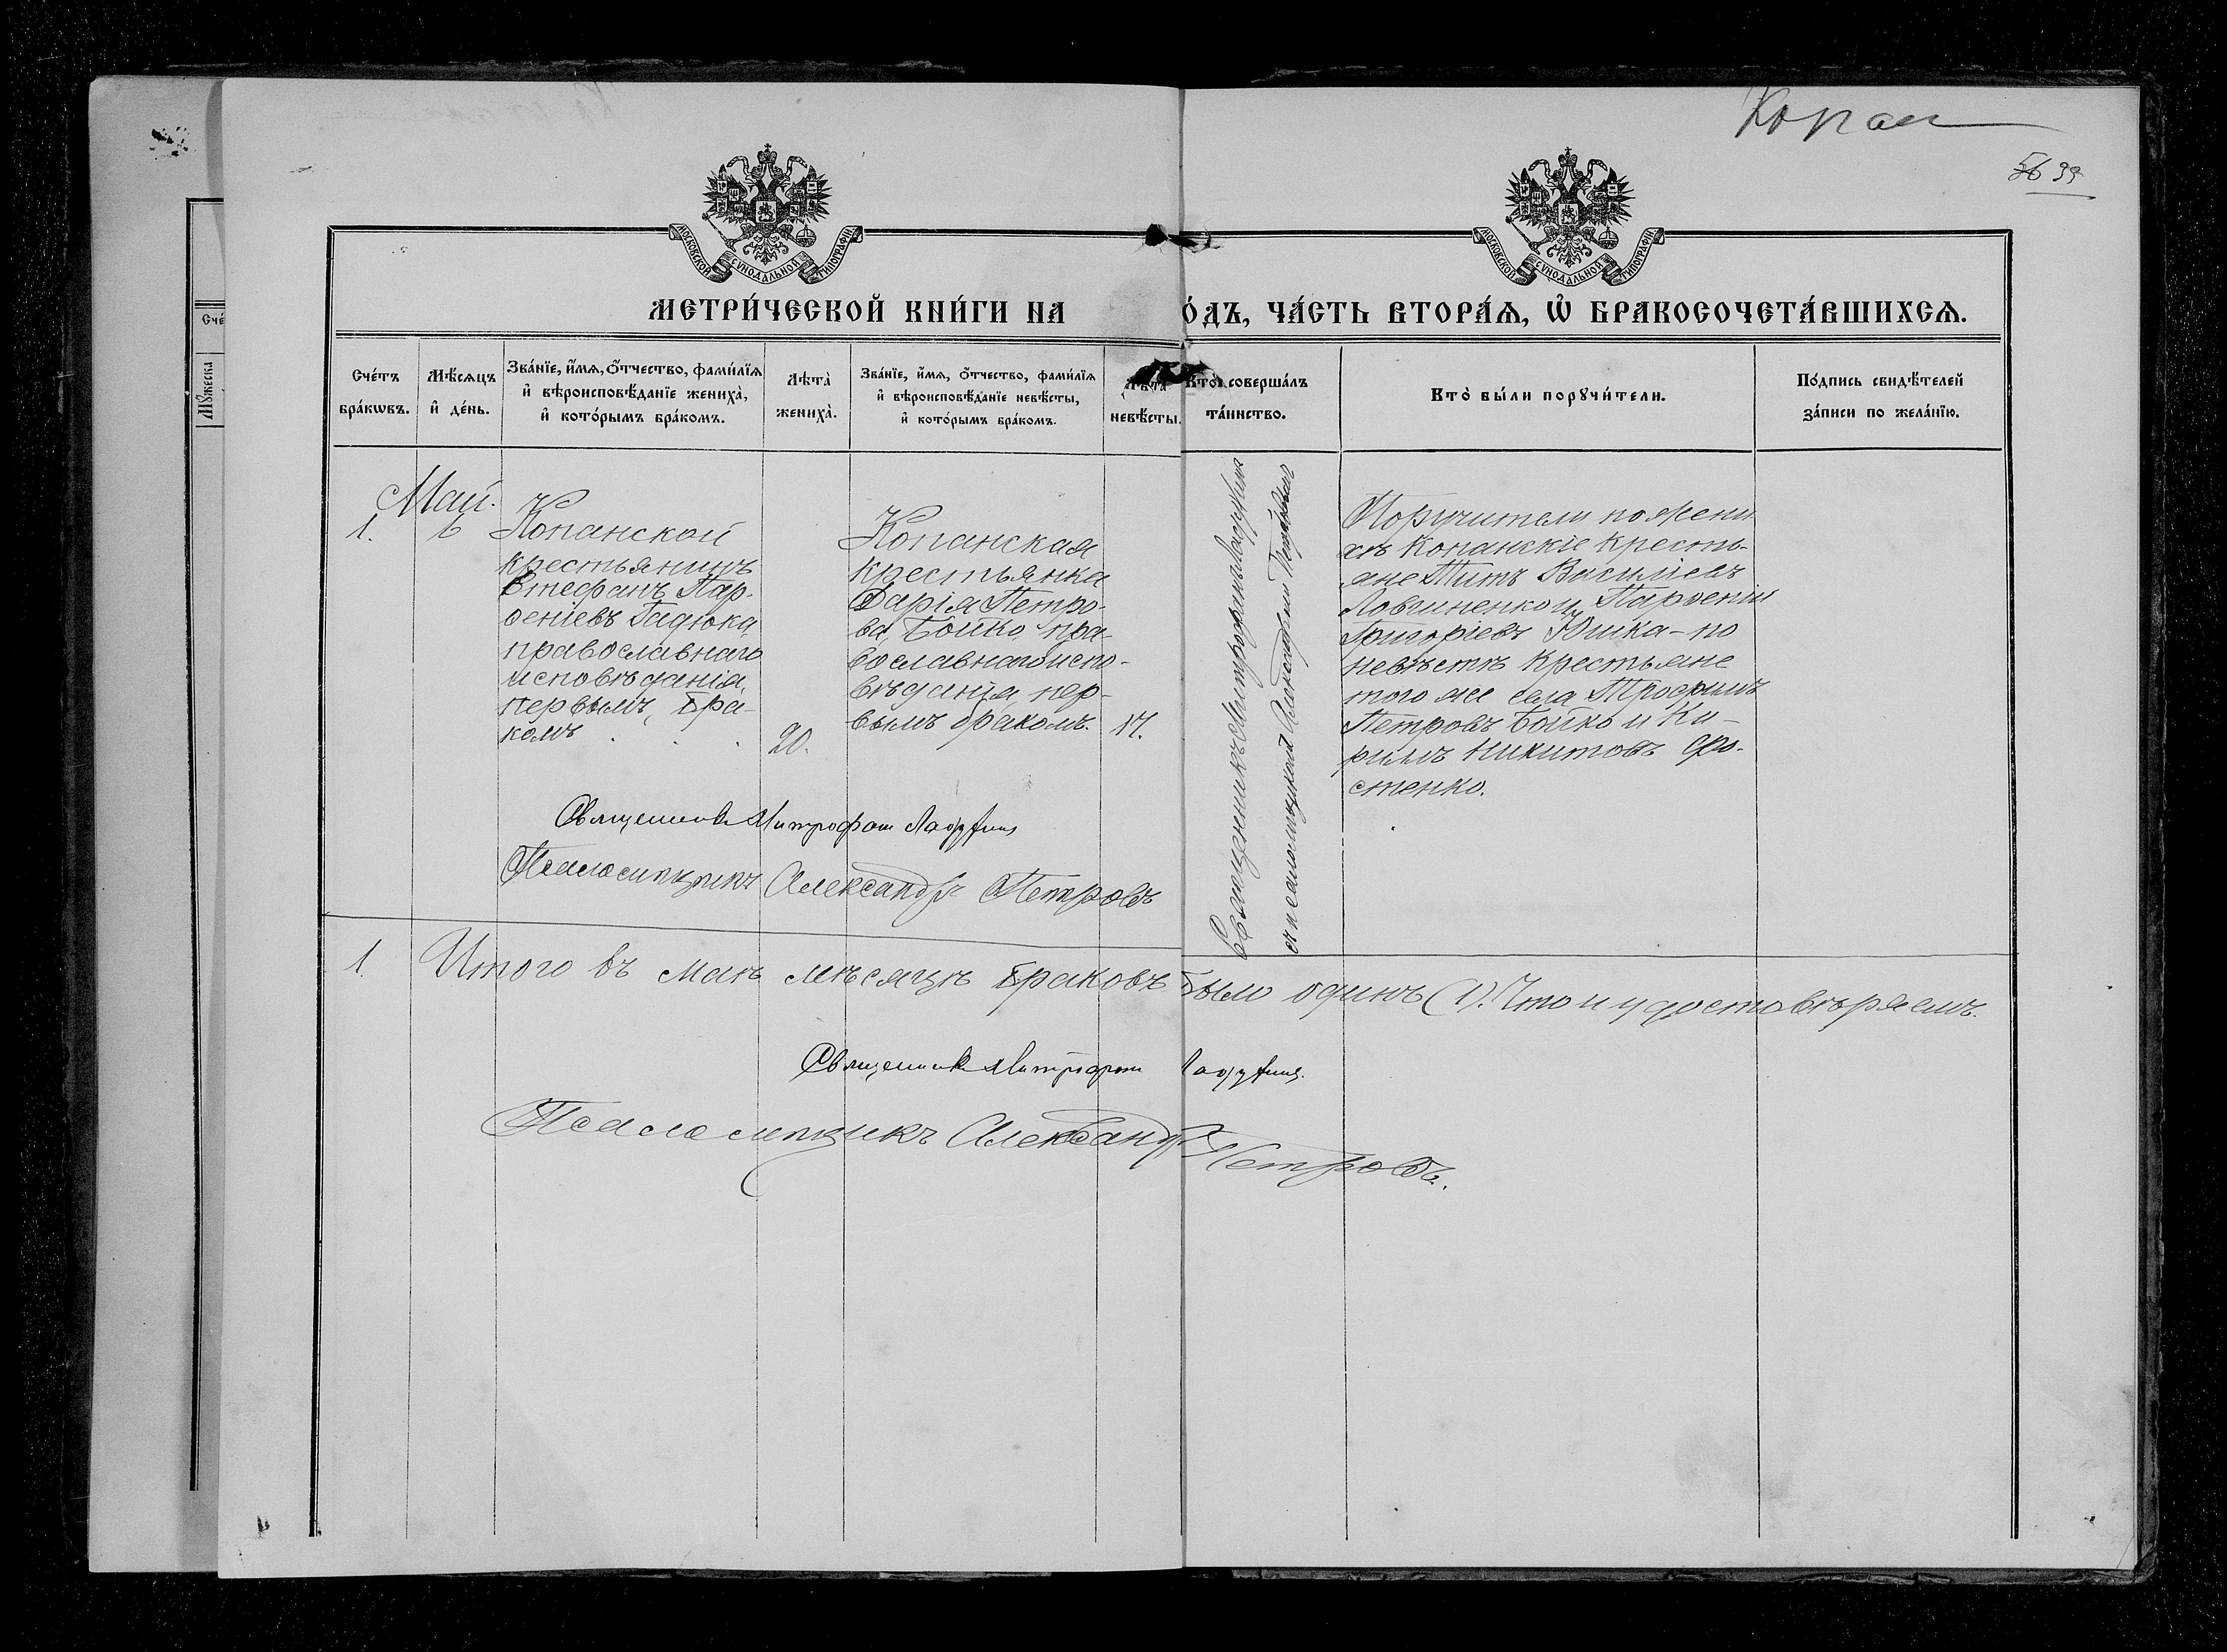 Копан
56 39
МОСКОВСКОЙ СѴНОДАЛЬНОЙ ТИПОГРАФІИ
МОСКОВСКОЙ СѴНОДАЛЬНОЙ ТИПОГРАФІИ
МЕТРИ́ЧЕСКОЙ КНИ́ГИ НА
О́ДЪ, ЧА́СТЬ ВТОРА́Ѧ, Ѿ БРАКОСОЧЕТА́ВШИХСѦ.
Сче́тъ
бра́кѡвъ.
Мѣ́сѧцъ
и҆ де́нь.
Зва́нїе, и҆́мѧ, ѻ҆́тчество, фами́лїѧ
и҆ вѣроисповѣ́данїе жениха̀,
и҆ кото́рымъ бра́комъ.
Лѣта̀
жениха̀.
Зва́нїе, и҆́мѧ, ѻ҆́тчество, фами́лїѧ
и҆ вѣроисповѣ́данїе невѣ́сты,
и҆ кото́рымъ бра́комъ.
Лѣта̀
невѣ́сты.
Кто̀ соверша́лъ
та́инство.
Кто̀ бы́ли порꙋчи́тели.
По́дпись свидѣ́телей
за́писи по жела́нїю.
Сче́
Мꙋжеска
Май.
1.
6
Копанской
крестьянинъ
Стефанъ Пар-
ѳеніевъ Гадюка,
православнаго
исповѣданія,
первымъ бра-
комъ . . .
20.
Копанская
крестьянка
Дарія Петро-
ва, Бойко, пра-
вославнаго испо-
вѣданія, пер-
вымъ бракомъ.
17.
Священникъ Митрофанъ
съ псаломщикомъ Александромъ Петровымъ
Поручители по жени
хѣ Копанскіе кресть-
яне Титъ Васильевъ
Ловчиненко и Парѳеній
Григоріевъ Юшка - по
невѣстѣ крестьяне
того же села Трофимъ
Петровъ Бойко и Ки-
рилъ Никитовъ Фо-
стенко.
Священникъ Митрофанъ
Псаломщикъ Александръ Петровъ
1.
Итого въ маѣ мѣсяцѣ браковъ было одинъ (1). Что и удостовѣряемъ.
Священникъ Митрофанъ
Псаломщикъ Александръ Петровъ.